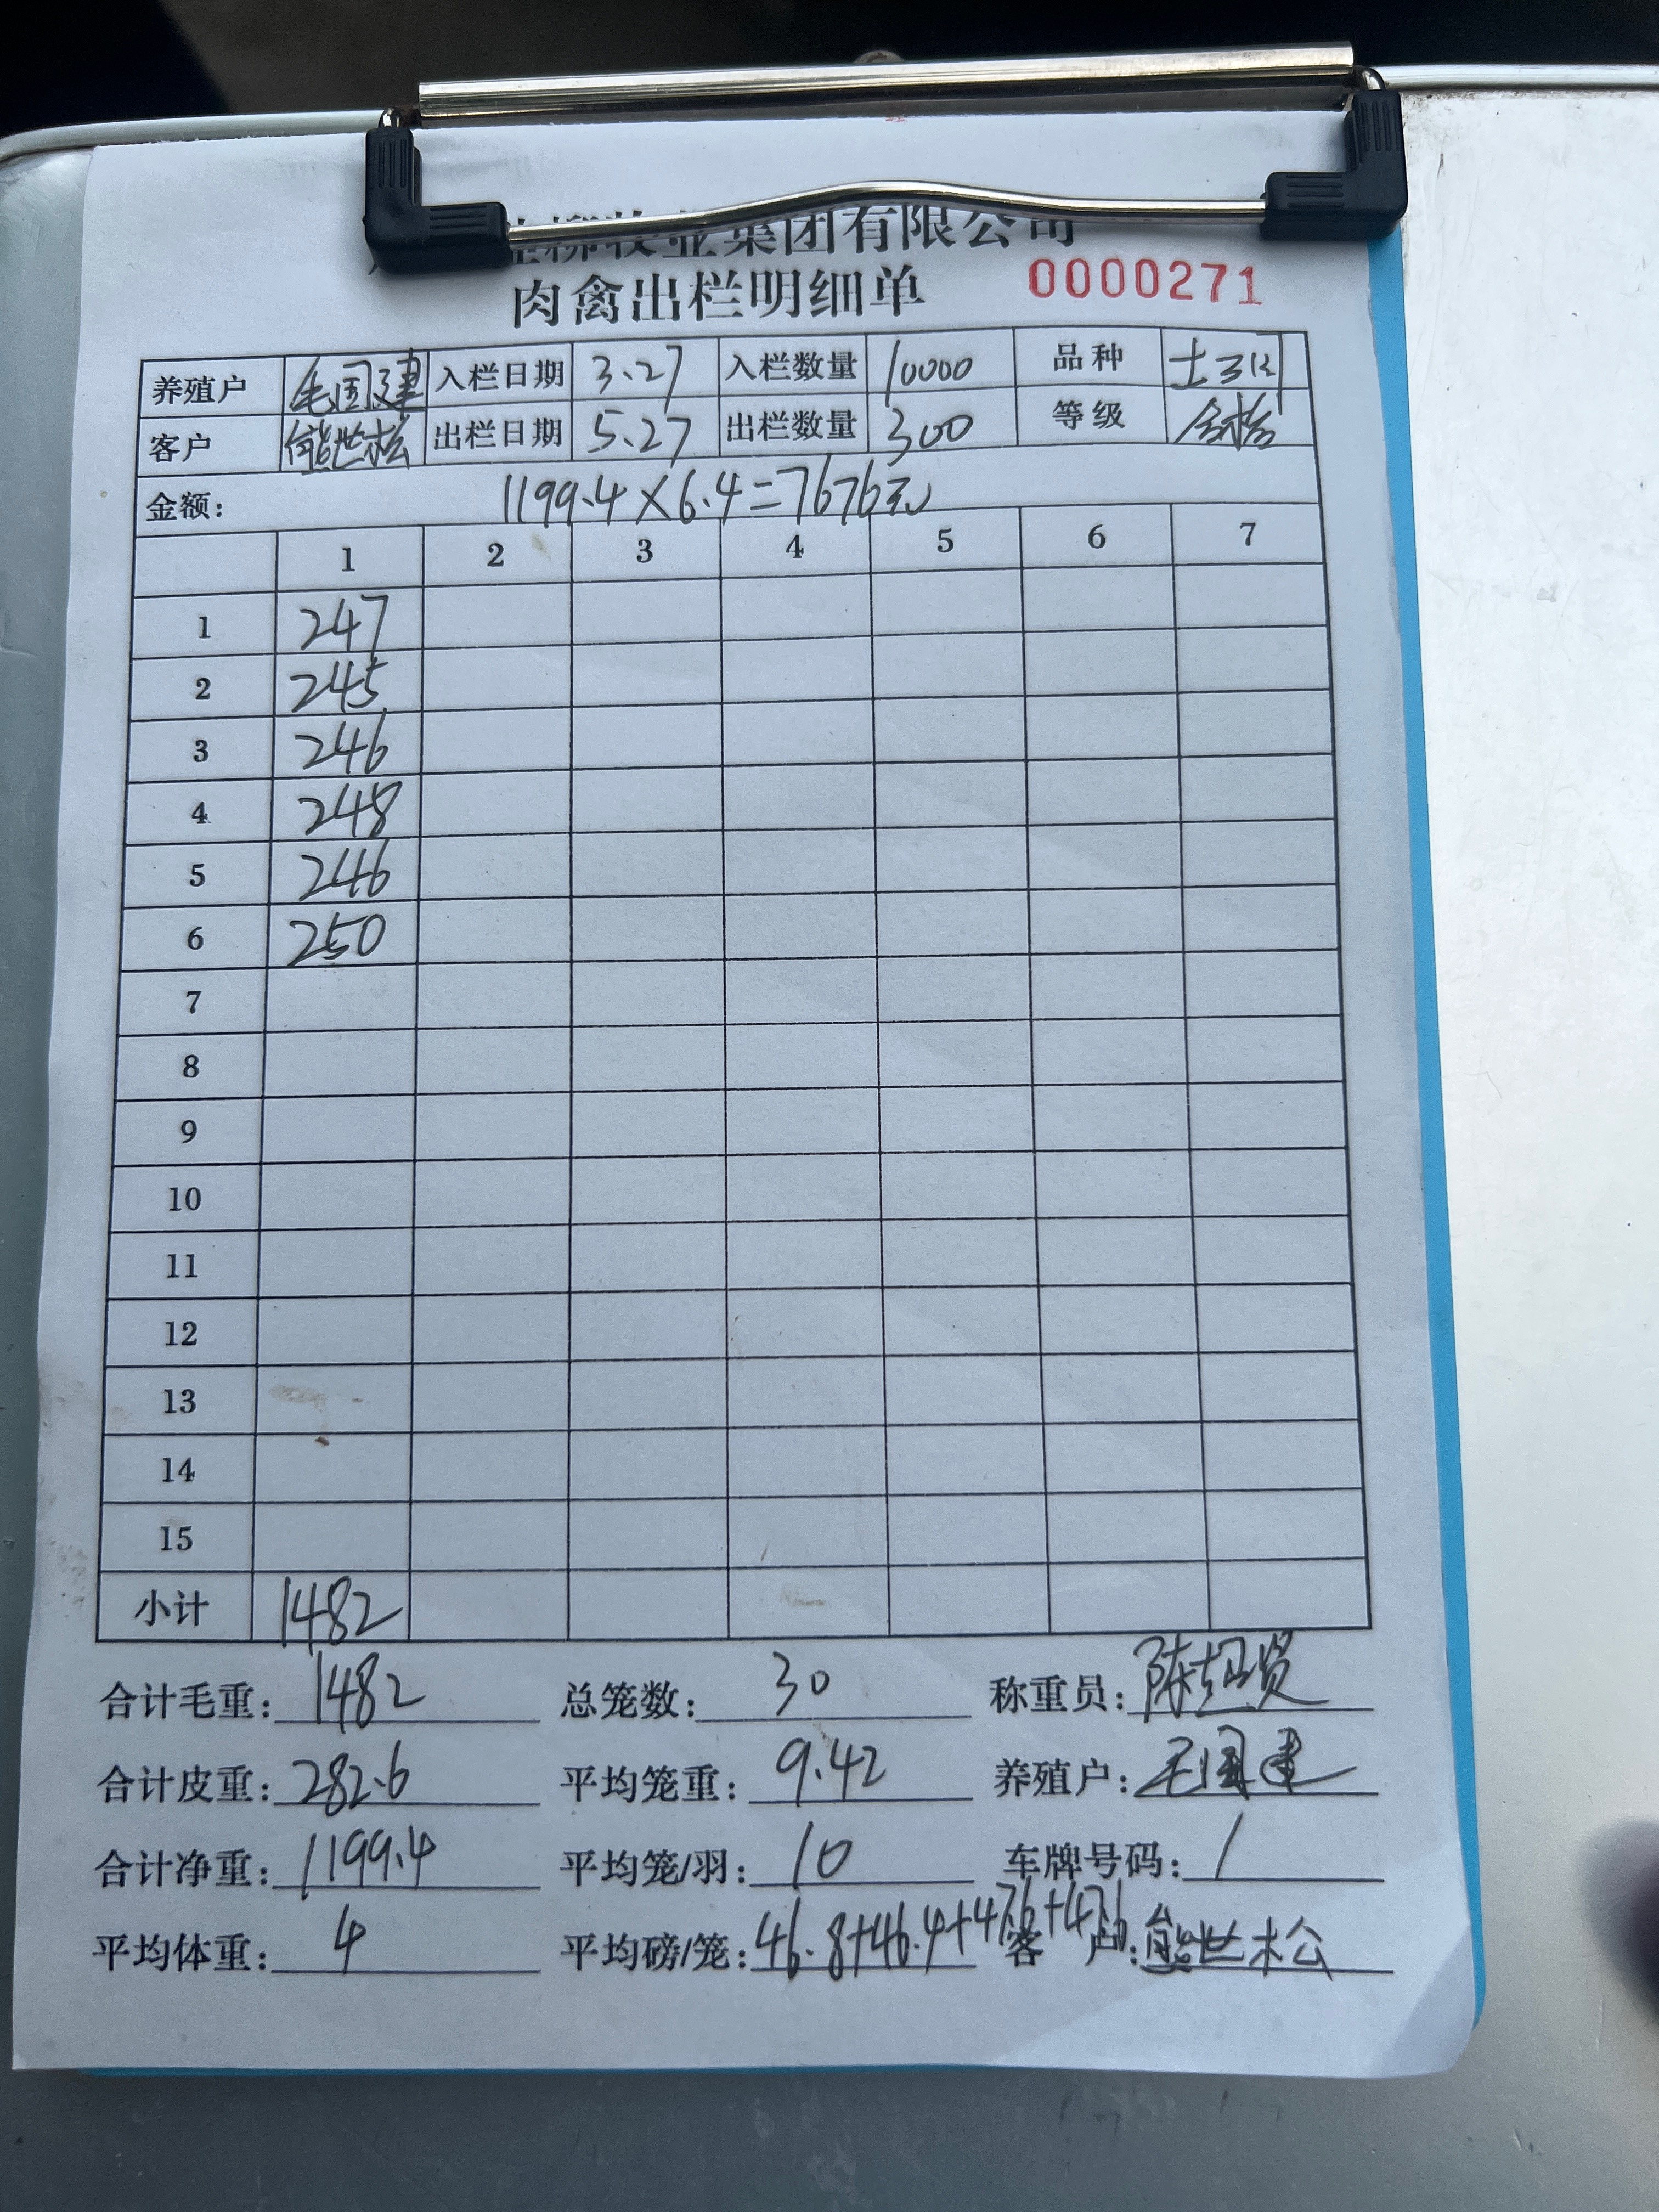 柳牧业集团有限公司
肉禽出栏明细单 0000271
养殖户 毛国建 入栏日期 3.27 入栏数量 10000 品种 土3
客户 熊世松 出栏日期 5.27 出栏数量 300 等级 合格
金额: 1199.4×6.4=7676元
1 2 3 4 5 6 7
1 247
2 245
3 246
4 248
5 246
6 250
7
8
9
10
11
12
13
14
15
小计 1482
合计毛重: 1482 总笼数: 30 称重员: 陈
合计皮重: 282.6 平均笼重: 9.42 养殖户: 毛国建
合计净重: 1199.4 平均笼/羽: 10 车牌号码: /
平均体重: 4 平均磅/笼: 46.8+46.4+47.6+47.6 客户: 熊世松